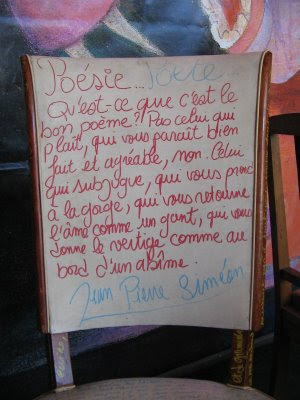 Poésie... Poète...
Qu'est-ce que c'est le
bon poème?! Pas celui qui
plaît, qui vous paraît bien
fait et agréable, non. Celui
qui subjugue, qui vous prend
à la gorge, qui vous retourne
l'âme comme un gant, qui vous
donne le vertige comme au
bord d'un abîme.
Jean Pierre Siméon